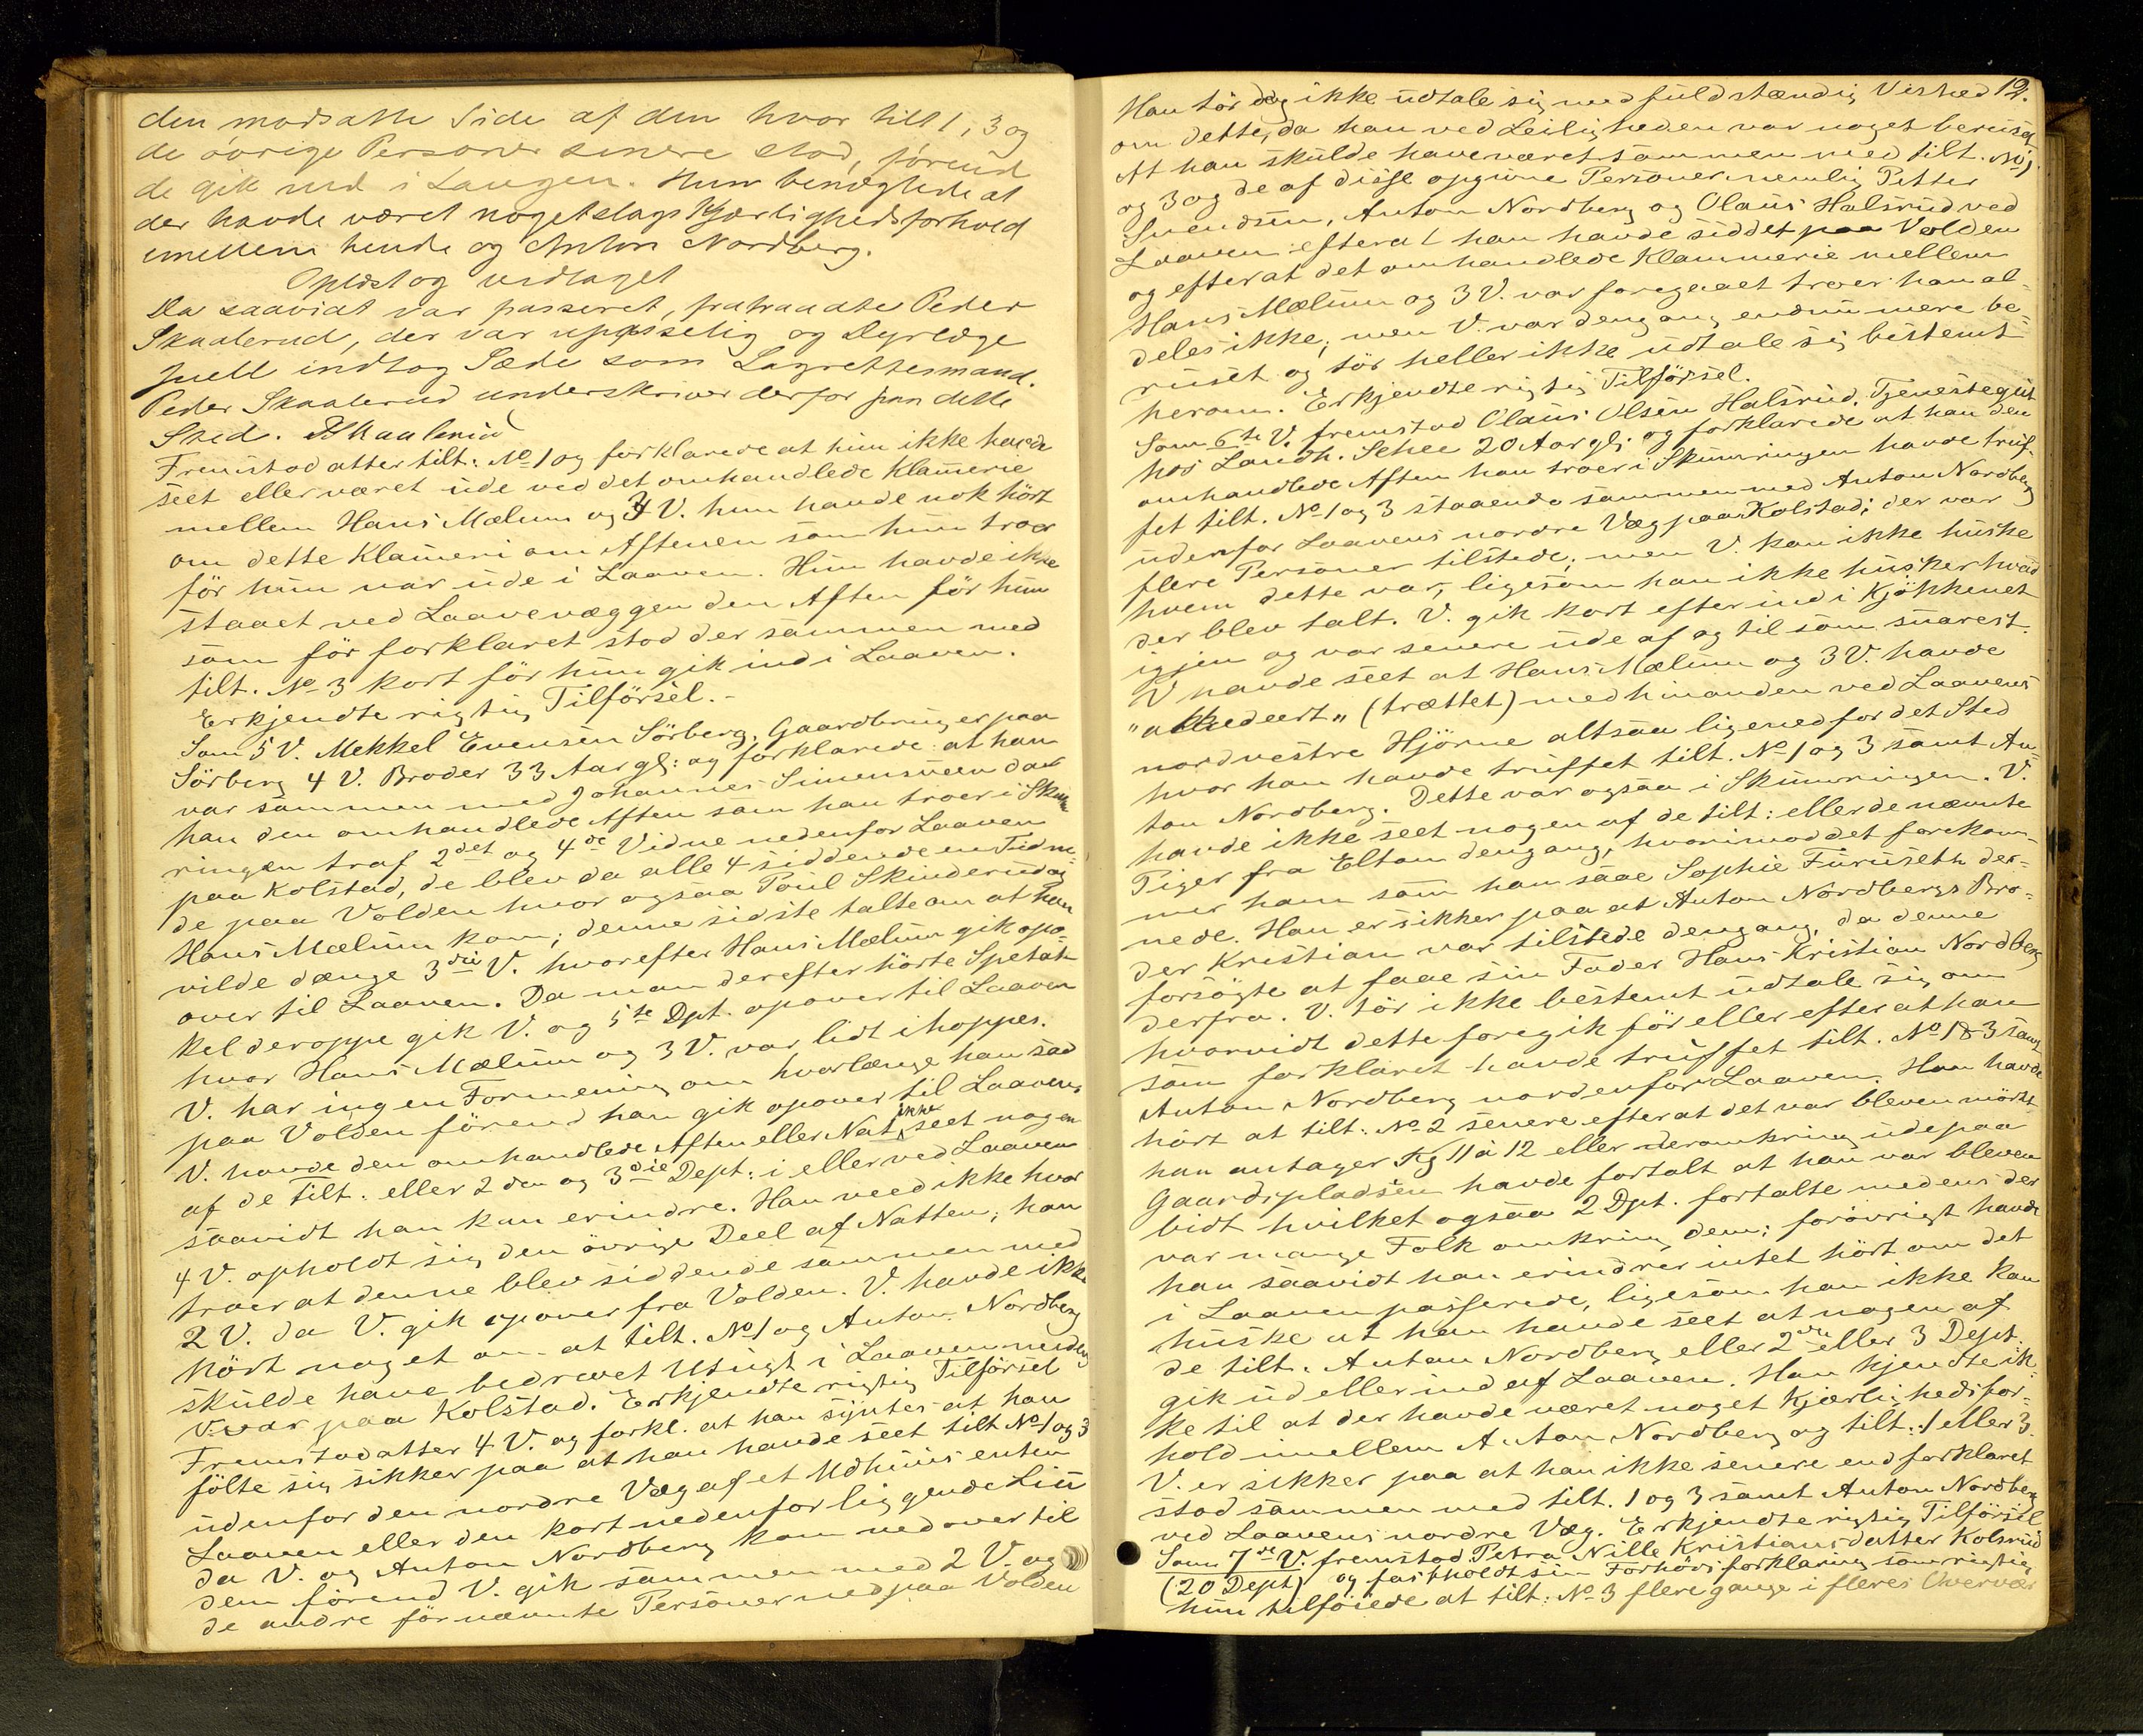 den modsatte Side af den hvor tilt 1, 3 og
de øvrige Personer senere stod, førend
de gik ind i Laugen. Hun benægtede at
der havde været nogetslags Kjærlighedsforhold
imellem hende og Anton Nordberg.
Oplæst og vedtaget
Da saavidt var passeret, fratraadte Peder
Skaalerud, der var upasselig og Dyrlæge
indtog Sæde som Lagrettesmand.
Peder Skaalerud underskriver derfor paa dette
Sted. PSkaalerud
Fremstod atter tilt: No 1 og forklarede at hun ikke havde
seet eller været ude ved det omhandlede Klameri
mellem Hans Mælum og 3 V. hun havde nok hört
om dette Klameri om Aftenen som hun troer
för hun var ude i Laaven. Hun havde ikke
staaet ved Laavevæggen den Aften för hun
som för forklaret stod der sammen med
tilt. No 3 kort för hun gik ind i Laaven.
Erkjendte rigtig Tilförsel.-
Som 5 V. Mekkel Evensen Sörberg, Gaardbruger paa
Sörberg 4 V. Broder 33 Aar gl: og forklarede at han
var sammen med Johannes Simensveen da
han den omhandlede Aften som han troer i Skum
ringen traf 2det og 4de Vidne nedenfor Laaven
paa Kolstad, de blev da alle 4 siddende en Tid ne-
de paa Volden hvor ogsaa Poul Skinderud og
Hans Mælum kom; denne sidste talte om at han
vilde dænge 3die V. hvorefter Hans Mælum gik opo-
ver til Laaven. Da man derefter hörte Spetak-
kel deroppe gik V. og 5te Dpt. opover til Laaven
hvor Hans Mælum og 3 V. var lidt ihoppes.
V. har ingen Formening om hvorlænge han sad
paa Volden förend han gik opover til Laaven,
V. havde den omhandlede Aften eller Nat ikke seet nogen
af de Tilt: eller 2den og 3die Dept: i eller ved Laaven
saavidt han kan erindre. Han veed ikke hvor
4 V. opholdt sig den övrige Deel af Natten; han
troer at denne blev siddende sammen med
2 V. da V. gik opover fra Volden. V. havde ikke
hört noget om at tilt. No 1 og Anton Nordberg
skulde have bedrevet Utugt i Laaven medens
V. var paa Kolstad. Erkjendte rigtig Tilförsel
Fremstod atter 4 V. og forkl. at han syntes at han
fölte sig sikker paa at han havde seet tilt No 1 og 3
udenfor den nordre Væg af et Udhuus enten
Laaven eller den kort nedenfor liggende
da V. og Anton Nordberg kom nedover til
dem förend V. gik sammen med 2 V. og
de andre för nævnte Personer ned paa Volden
19.
Han tör dog ikke udtale sig med fuldstændig Vished
om dette, da han ved Leiligheden var noget beruset.
At han skulde have været sammen med tilt. No 1
og 3 og de af disse opgivne Personer nemlig Petter
Svendsen, Anton Nordberg og Olaus Halsrud ved
Laaven efterat han havde siddet paa Volden
og efterat det omhandlede Klammerie mellem
Hans Mælum og 3 V. var foregaaet troer han al-
deles ikke; men V. var dengang endnu mere be-
ruset og tör heller ikke udtale sig bestemt
herom. Erkjendte rigtig Tilförsel.
Som 6te V. fremstod Olaus Olsen Halsrud, Tjenestegut
hos Landh. Schee 20 Aar gl; og forklarede at han den
omhandlede Aften han troer i Skumringen havde truf-
fet tilt. No 1 og 3 staaende sammen med Anton Nordberg
udenfor Laavens nordre Væg paa Kolstad; der var
flere Personer tilstede; men V. kan ikke huske
hvem dette var, ligesom han ikke husker hvad
der blev talt. V. gik kort efter ind i Kjökkenet
igjen og var senere ude af og til som snarest.
V havde seet at Hans Mælum og 3 V. havde
(trættet) med hinanden ved Laavens
nordvestre Hjörne altsaa ligenedfor det Sted
hvor han havde truffet tilt. No 1 og 3 samt An-
ton Nordberg. Dette var ogsaa i Skumringen. V.
havde ikke seet nogen af de tilt: eller de nævnte
Piger fra Elton dengang, hvorimod det forekom-
mer ham som han saae Sophie Furuseth der-
nede. Han er sikker paa at Anton Nordbergs Bro-
der Kristian var tilstede dengang, da denne
forsögte at faae sin Fader Hans Kristian Nordberg
derfra. V. tör ikke bestemt udtale sig om
hvorvidt dette foregik för eller efter at han
som forklaret havde truffet tilt. No 1 & 3 samt
Anton Nordberg nordenfor Laaven. Han havde
hört at tilt: No 2 senere efter at det var bleven mörkt
han antager Kl 11 à 12 eller deromkring ude paa
Gaardspladsen havde fortalt at hun var bleven
bidt hvilket ogsaa 2 Dpt. fortalte medens der
var mange Folk omkring dem; forövrigt havde
han saavidt han erindrer intet hört om det
i Laaven passerede, ligesom han ikke kan
huske at han havde seet at nogen af
de tilt. Anton Nordberg eller 2den eller 3 Dept.
gik ud eller ind af Laaven. Han kjendte ik-
ke til at der havde været noget Kjærlighedsfor-
hold imellem Anton Nordberg og tilt: 1 eller 3.
V. er sikker paa at han ikke senere end forklaret
stod sammen med tilt. 1 og 3 samt Anton Nordberg
ved Laavens nordre Væg. Erkjendte rigtig Tilförsel
Som 7de V. fremstod Petra Nille Kristiansdatter Kolsrud
(20 Dept) og fastholdt sin Forhörsforklaring som rigtig
hun tilföiede at tilt: No 3 flere gange i fleres Overvær